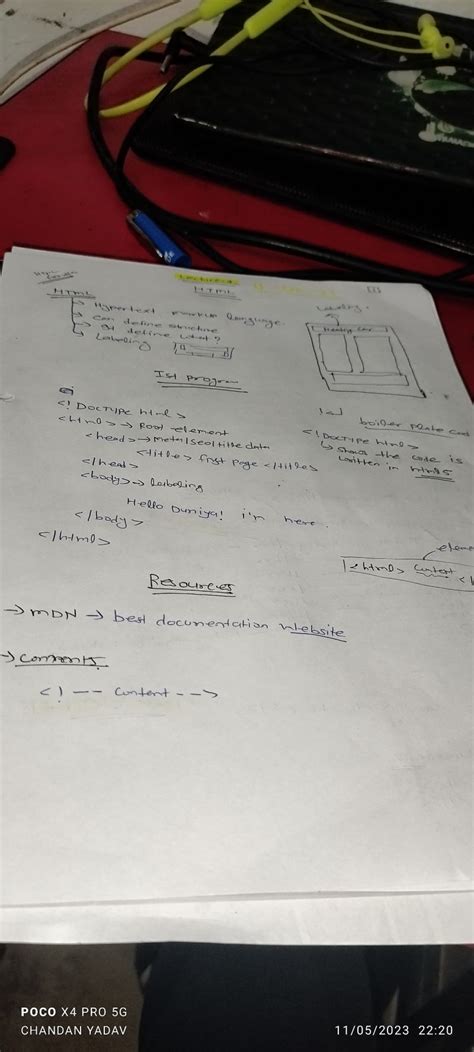 Lecture-1
HTML
HTML
Hypertext markup language.
can define structure
It define what?
Labeling
Labeling
Ist program
<! DOCTYPE html>
<html> → Root element
<head> → meta/seo/title data
<title> first page </title>
</head>
<body> → Labeling
Hello Duniya! i'm here.
</body>
</html>
boiler plate code
<! DOCTYPE html>
↳ shows the code is
written in html5
<html> content <
Resources
→ MDN → best documentation website
→ Comments.
<! -- content -->
POCO X4 PRO 5G
CHANDAN YADAV
11/05/2023 22:20